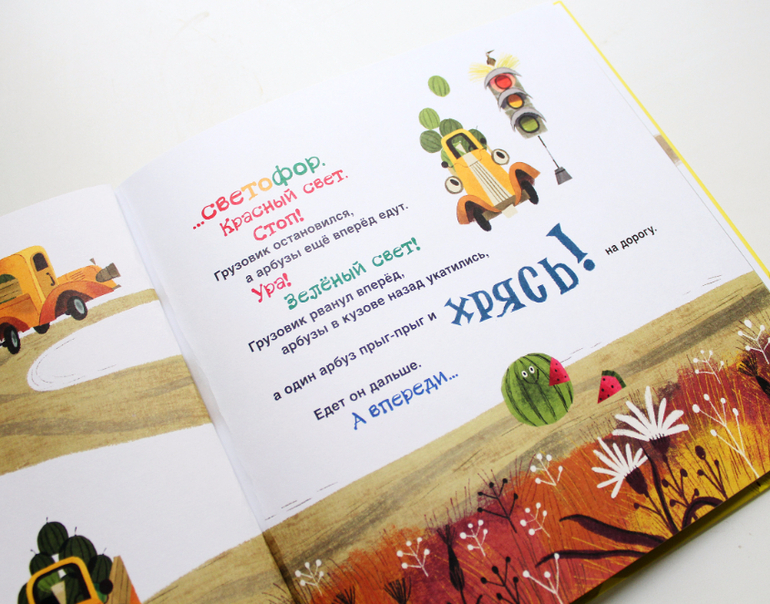 ...светофор.
Красный свет.
Стоп!
Грузовик остановился,
а арбузы ещё вперёд едут.
Ура!
Зелёный свет!
Грузовик рванул вперёд,
арбузы в кузове назад укатились,
а один арбуз прыг-прыг и ХРЯСЬ! на дорогу.
Едет он дальше.
А впереди...